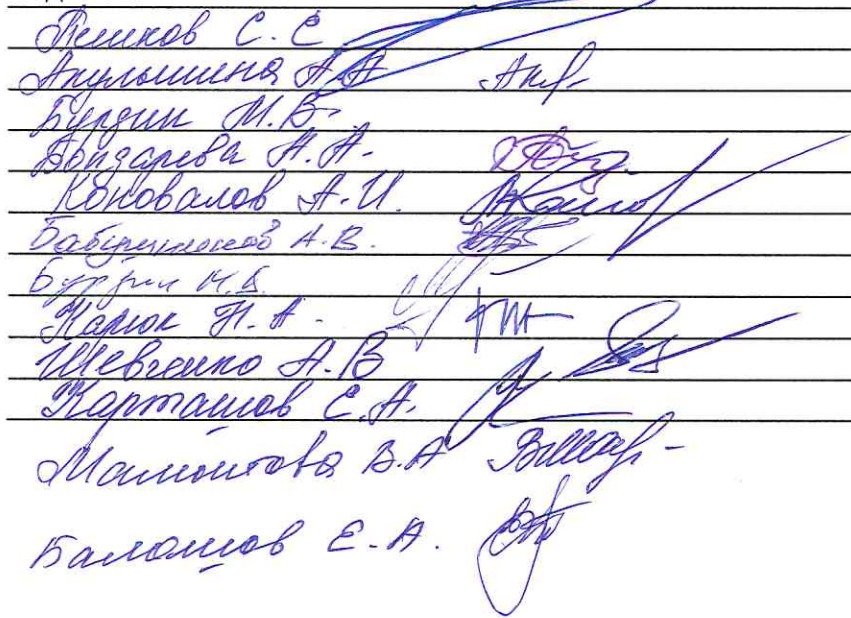 Пешков С. С
Акульшина А. А
Бурдин М. В.
Бондарева Н. А.
Коновалов А. И.
А. В.
Бурдин М. В.
Карюк Н. А.
Шевченко А. В
Карташов Е. А.
Мамонтова В. А
Балашов Е. А.